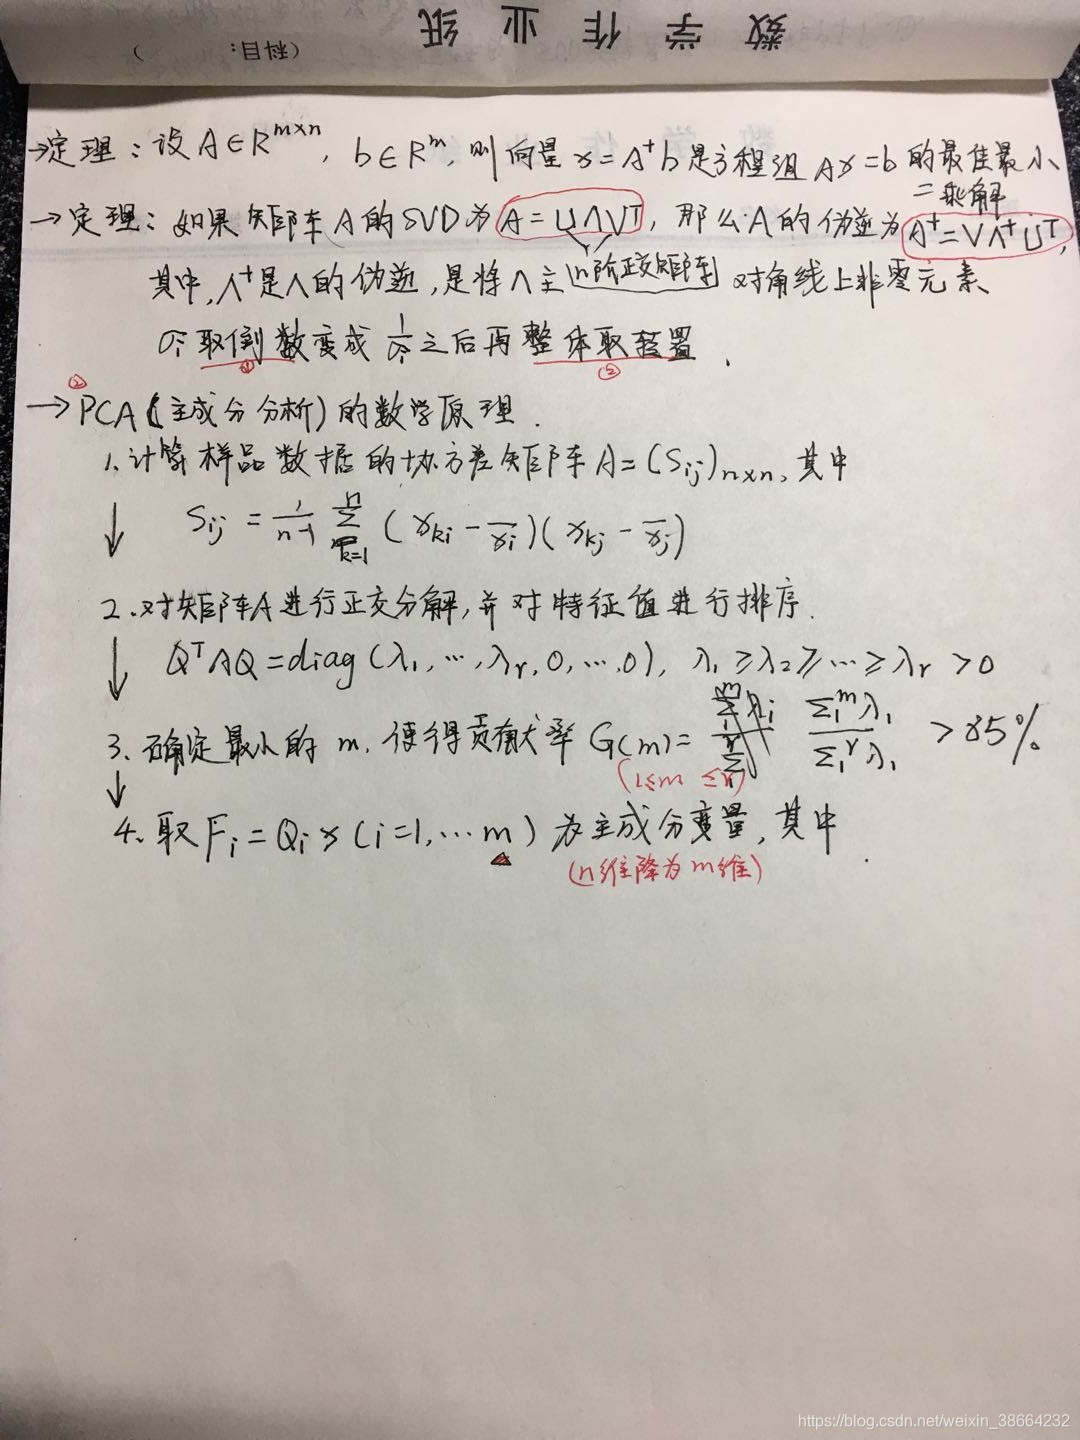 数学作业纸
(科目: )
→定理:设A∈R^{m×n}, b∈R^m, 则向量x=A⁺b是方程组Ax=b的最佳最小
二乘解
→定理:如果矩阵A的SVD为A=UΛV^T, 那么A的伪逆为A⁺=VΛ⁺U^T,
其中,Λ⁺是Λ的伪逆,是将Λ主 n阶正交矩阵 对角线上非零元素
σi取倒数变成1/σi之后再整体取转置.
① ②
②
→PCA(主成分分析)的数学原理.
1.计算样品数据的协方差矩阵A=(Sij)n×n,其中
↓ Sij = 1/(n-1) Σ_{k=1}^{n} (xki - x̄i)(xkj - x̄j)
2.对矩阵A进行正交分解,并对特征值进行排序.
↓ Q^TAQ=diag(λ1,…,λr,0,…,0), λ1≥λ2≥…≥λr>0
3.确定最小的m,使得贡献率G(m)= Σ_1^m λ1 / Σ_1^r λ1 >85%
(1≤m≤r)
↓
4.取Fi=Qix(i=1,…m)为主成分变量,其中.
(n维降为m维)
https://blog.csdn.net/weixin_38664232